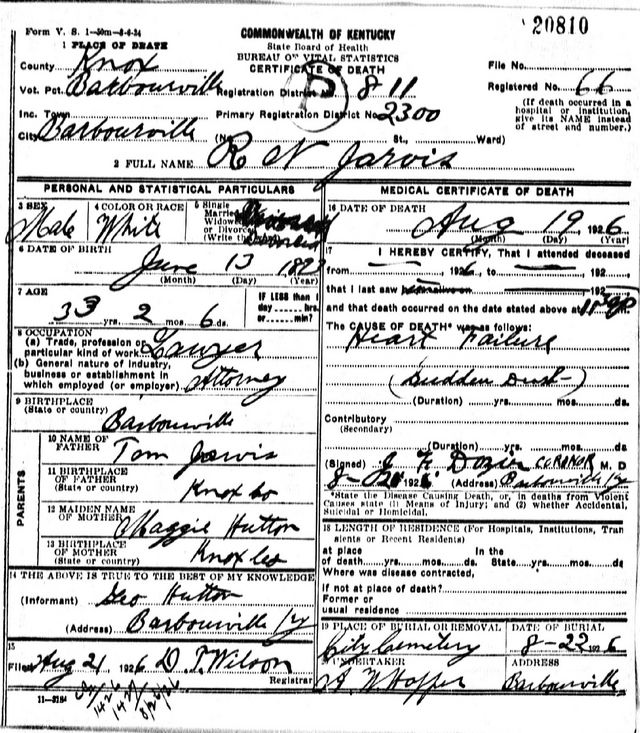 Form V. S. 1—50m—8-6-24
COMMONWEALTH OF KENTUCKY
State Board of Health
BUREAU OF VITAL STATISTICS
CERTIFICATE OF DEATH
20810
1 PLACE OF DEATH
County Knox
File No.
Vot. Pct. Barbourville Registration District No. 811
Registered No. 66
Inc. Town Primary Registration District No. 2300
(If death occurred in a hospital or institution, give its NAME instead of street and number.)
City Barbourville (No. St., Ward)
2 FULL NAME R N Jarvis
PERSONAL AND STATISTICAL PARTICULARS
3 SEX Male
4 COLOR OR RACE White
5 Single Married Widowed or Divorced (Write the word)
6 DATE OF BIRTH June 13 1893
(Month) (Day) (Year)
7 AGE 33 yrs. 2 mos. 6 ds.
IF LESS than 1 day hrs. or min?
8 OCCUPATION
(a) Trade, profession or particular kind of work Lawyer
(b) General nature of industry, business or establishment in which employed (or employer) Attorney
9 BIRTHPLACE
(State or country) Barbourville
PARENTS
10 NAME OF FATHER Tom Jarvis
11 BIRTHPLACE OF FATHER
(State or country) Knox Co
12 MAIDEN NAME OF MOTHER Maggie Hutton
13 BIRTHPLACE OF MOTHER
(State or country) Knox Co
14 THE ABOVE IS TRUE TO THE BEST OF MY KNOWLEDGE
(Informant) Geo Hutton
(Address) Barbourville Ky
15
Filed Aug 21 1926 D. T. Wilson
Registrar
11—3184
MEDICAL CERTIFICATE OF DEATH
16 DATE OF DEATH Aug 19, 1926
(Month) (Day) (Year)
17 I HEREBY CERTIFY, That I attended deceased
from 1926, to 192
that I last saw 192
and that death occurred on the date stated above at
The CAUSE OF DEATH* was as follows:
Heart Failure
(Sudden
(Duration) yrs. mos. ds.
Contributory
(Secondary)
(Duration) yrs. mos. ds.
(Signed) Dozier CORONOR M. D
1926 (Address) Barbourville Ky
*State the Disease Causing Death, or, in deaths from Violent
Causes state (1) Means of Injury; and (2) whether Accidental,
Suicidal or Homicidal.
18 LENGTH OF RESIDENCE (For Hospitals, Institutions, Tran
sients or Recent Residents)
at place In the
of death yrs. mos. ds. State yrs. mos. ds
Where was disease contracted,
if not at place of death?
Former or
usual residence
19 PLACE OF BURIAL OR REMOVAL DATE OF BURIAL
City Cemetery 8-22 1926
UNDERTAKER ADDRESS
A W Hopper Barbourville